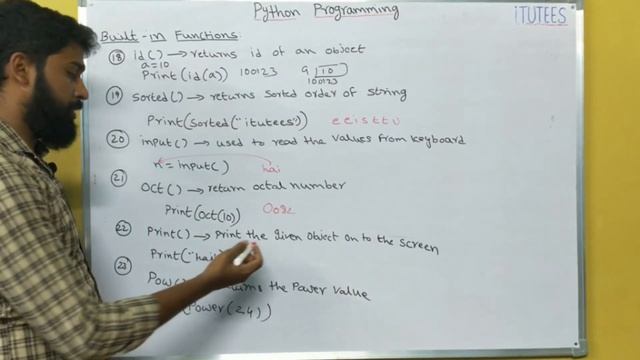 Python Programming
iTUTEES
Built-in Functions:
18 id() → returns id of an object
a=10
Print(id(a)) 100123 a 10
100123
19 sorted() → returns sorted order of string
Print(sorted("itutees")) eeisttu
20 input() → used to read the values from keyboard
x = input() hai
21 oct() → return octal number
Print(oct(10))
22 Print() → Print the given object on to the screen
Print("hai
23 Pow( the Power value
Power(2,4))